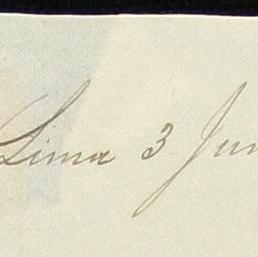 Lima 3 Jun